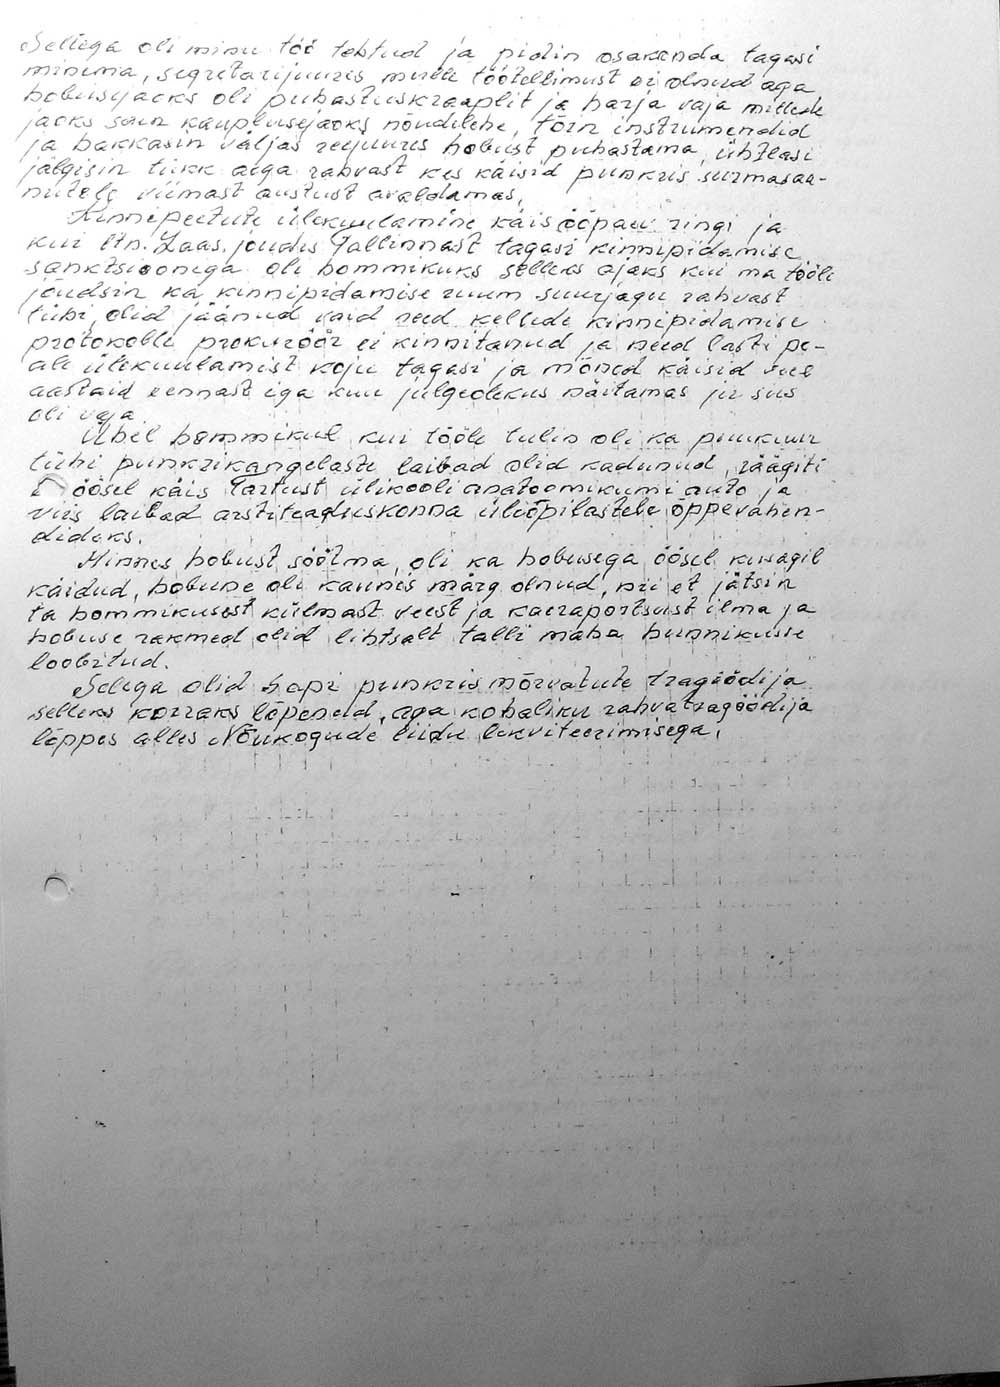 Sellega oli minu töö tehtud ja pidin osakonda tagasi
minema, segretarijuures mulle töötellimust ei olnud aga
hobusejaoks oli puhastuskraaplit ja harja vaja millede
jaoks sain kauplusejaoks nõudilehe, tõin instrumendid
ja hakkasin väljas reejuures hobust puhastama, ühtlasi
jälgisin tükk aega rahvast kes käisid punkris surmasaa-
nutele viimast austust avaldamas.
Kinnipeetute ülekuulamine käis ööpäev ringi ja
kui ltn. Laas. jõudis Tallinnast tagasi kinnipidamise
sanktsiooniga oli hommikuks selleks ajaks kui ma tööle
jõudsin ka kinnipidamise ruum suurjagu rahvast
tühi, olid jäänud vaid need kellede kinnipidamise
protokolli prokuröör ei kinnitanud ja need lasti pe-
ale ülekuulamist koju tagasi ja mõned käisid veel
aastaid ennast iga kuu julgeolekus näitamas
oli vaja.
Ühel hommikul kui tööle tulin oli ka puukuur
tühi punkrikangelaste laibad olid kadunud, räägiti
öösel käis Tartust ülikooli anatoomikumi auto ja
viis laibad arstiteaduskonna üliõpilastele õppevahen-
dideks.
Minnes hobust söötma, oli ka hobusega öösel kusagil
käidud, hobune oli kaunis märg olnud, nii et jätsin
ta hommikusest külmast veest ja kaeraportsust ilma ja
hobuse rakmed olid lihtsalt talli maha hunnikusse
loobitud.
Sellega olid hapi punkris mõrvatute tragöödija
selleks korraks lõpenud, aga kohaliku rahvatragöödija
lõppes alles Nõukogude liidu likviteerimisega.